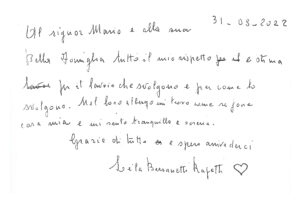 31-08-2022
Al signor Mario e alla sua
Bella Famiglia tutto il mio rispetto e stima
per il lavoro che svolgono e per come lo
svolgono. Nel loro albergo mi trovo come se fosse
casa mia e mi sento tranquilla e serena.
Grazie di tutto e spero arrivederci
Leila